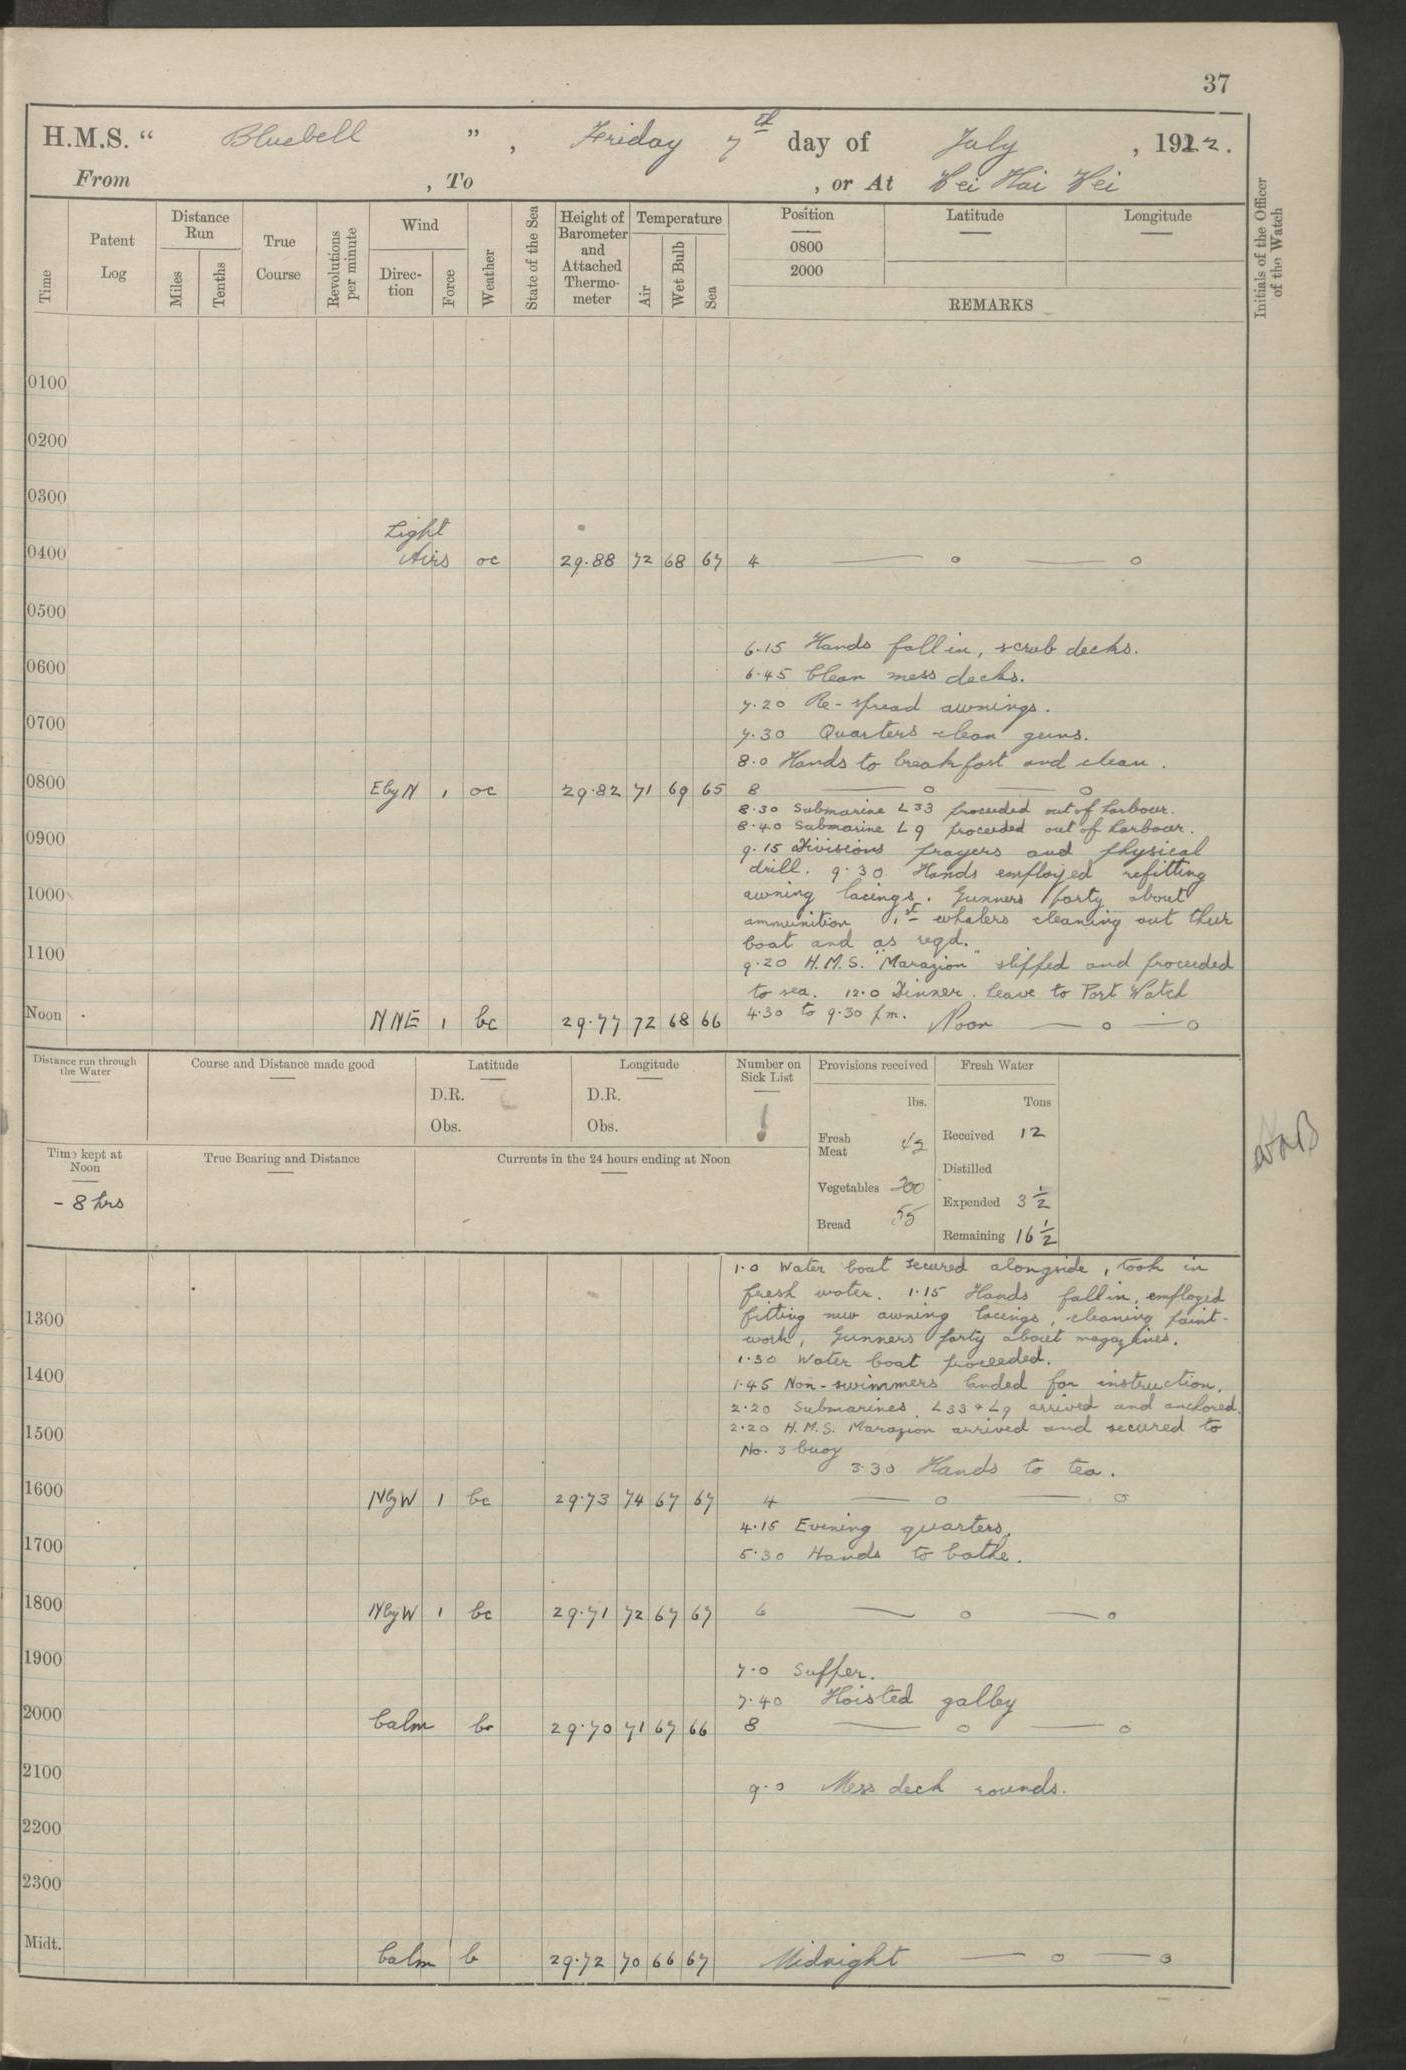 37
H.M.S. “ Bluebell ” , Friday 7th day of July , 1922.
From , To , or At Wei Hai Wei
Time
Patent Log
Distance Run
Miles
Tenths
True Course
Revolutions per minute
Wind
Direc-tion
Force
Weather
State of the Sea
Height of Barometer and Attached Thermo-meter
Temperature
Air
Wet Bulb
Sea
Position
0800
2000
Latitude
Longitude
REMARKS
Initials of the Officer of the Watch
0100
0200
0300
Light
0400 Airs oc 29.88 72 68 67 4 — o — o
0500
6.15 Hands fall in, scrub decks.
0600
6.45 Clean mess decks.
7.20 Re-spread awnings.
0700
7.30 Quarters clean guns.
8.0 Hands to breakfast and clean.
0800 EbyN 1 oc 29.82 71 69 65 8 — o — o
8.30 Submarine L33 proceeded out of harbour.
8.40 Submarine L9 proceeded out of harbour.
0900
9.15 Divisions prayers and physical
drill. 9.30 Hands employed refitting
1000
awning lacings. Gunners party about
ammunition 1st whalers cleaning out their
boat and as reqd.
1100
9.20 H.M.S. "Marazion" slipped and proceeded
to sea. 12.0 Dinner. Leave to Port Watch
4.30 to 9.30 pm.
Noon NNE 1 bc 29.77 72 68 66 Noon — o — o
Distance run through the Water
Course and Distance made good
Latitude
D.R.
Obs.
Longitude
D.R.
Obs.
Number on Sick List
1
Provisions received
lbs.
Fresh Meat 42
Vegetables 200
Bread 55
Fresh Water
Tons
Received 12
Distilled
Expended 3 1/2
Remaining 16 1/2
Time kept at Noon
- 8 hrs
True Bearing and Distance
Currents in the 24 hours ending at Noon
1.0 Water boat secured alongside, took in
fresh water. 1.15 Hands fall in, employed
1300
fitting new awning lacings, cleaning paint-
work, Gunners party about magazines.
1.30 Water boat proceeded.
1400
1.45 Non-swimmers landed for instruction.
2.20 Submarines L33 + L9 arrived and anchored.
1500
2.20 H.M.S. Marazion arrived and secured to
No. 3 buoy
3.30 Hands to tea.
1600 NbyW 1 bc 29.73 74 67 67 4 — o — o
4.15 Evening quarters.
1700
5.30 Hands to bathe.
1800 NbyW 1 bc 29.71 72 67 67 6 — o — o
1900
7.0 Supper.
7.40 Hoisted galley
2000 Calm bc 29.70 71 67 66 8 — o — o
2100
9.0 Mess deck rounds.
2200
2300
Midt. Calm b 29.72 70 66 67 Midnight — o — o